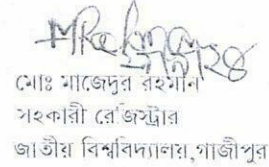 মোঃ মাজেদুর রহমান
সহকারী রেজিস্ট্রার
জাতীয় বিশ্ববিদ্যালয়,গাজীপুর